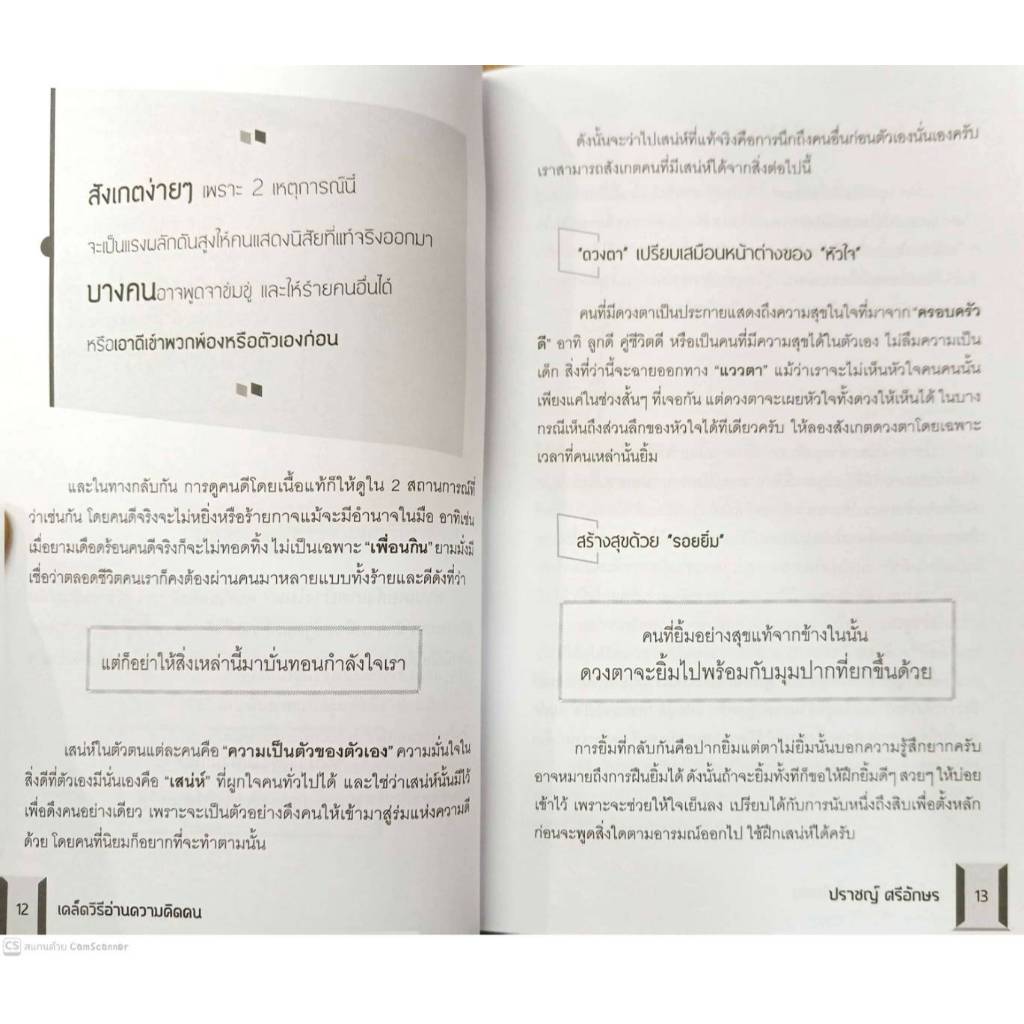 สังเกตง่ายๆ เพราะ 2 เหตุการณ์นี้
จะเป็นแรงผลักดันสูงให้คนแสดงนิสัยที่แท้จริงออกมา
บางคนอาจพูดจาข่มขู่ และให้ร้ายคนอื่นได้
หรือเอาดีเข้าพวกพ้องหรือตัวเองก่อน
และในทางกลับกัน การดูคนดีโดยเนื้อแท้ก็ให้ดูใน 2 สถานการณ์ที่
ว่าเช่นกัน โดยคนดีจริงจะไม่หยิ่งหรือร้ายกาจแม้จะมีอำนาจในมือ อาทิเช่น
เมื่อยามเดือดร้อนคนดีจริงก็จะไม่ทอดทิ้ง ไม่เป็นเฉพาะ "เพื่อนกิน" ยามมั่งมี
เชื่อว่าตลอดชีวิตคนเราก็คงต้องผ่านคนมาหลายแบบทั้งร้ายและดีดังที่ว่า
แต่ก็อย่าให้สิ่งเหล่านี้มาบั่นทอนกำลังใจเรา
เสน่ห์ในตัวตนแต่ละคนคือ "ความเป็นตัวของตัวเอง" ความมั่นใจใน
สิ่งดีที่ตัวเองมีนั่นเองคือ "เสน่ห์" ที่ผูกใจคนทั่วไปได้ และใช่ว่าเสน่ห์นั้นมีไว้
เพื่อดึงคนอย่างเดียว เพราะจะเป็นตัวอย่างดึงคนให้เข้ามาสู่ร่มแห่งความดี
ด้วย โดยคนที่นิยมก็อยากที่จะทำตามนั้น
12 เคล็ดวิธีอ่านความคิดคน
CS สแกนด้วย CamScanner
ดังนั้นจะว่าไปเสน่ห์ที่แท้จริงคือการนึกถึงคนอื่นก่อนตัวเองนั่นเองครับ
เราสามารถสังเกตคนที่มีเสน่ห์ได้จากสิ่งต่อไปนี้
"ดวงตา" เปรียบเสมือนหน้าต่างของ "หัวใจ"
คนที่มีดวงตาเป็นประกายแสดงถึงความสุขในใจที่มาจาก "ครอบครัว
ดี" อาทิ ลูกดี คู่ชีวิตดี หรือเป็นคนที่มีความสุขได้ในตัวเอง ไม่ลืมความเป็น
เด็ก สิ่งที่ว่านี้จะฉายออกทาง "แววตา" แม้ว่าเราจะไม่เห็นหัวใจคนคนนั้น
เพียงแค่ในช่วงสั้นๆ ที่เจอกัน แต่ดวงตาจะเผยหัวใจทั้งดวงให้เห็นได้ ในบาง
กรณีเห็นถึงส่วนลึกของหัวใจได้ทีเดียวครับ ให้ลองสังเกตดวงตาโดยเฉพาะ
เวลาที่คนเหล่านั้นยิ้ม
สร้างสุขด้วย "รอยยิ้ม"
คนที่ยิ้มอย่างสุขแท้จากข้างในนั้น
ดวงตาจะยิ้มไปพร้อมกับมุมปากที่ยกขึ้นด้วย
การยิ้มที่กลับกันคือปากยิ้มแต่ตาไม่ยิ้มนั้นบอกความรู้สึกยากครับ
อาจหมายถึงการฝืนยิ้มได้ ดังนั้นถ้าจะยิ้มทั้งทีก็ขอให้ฝึกยิ้มดีๆ สวยๆ ให้บ่อย
เข้าไว้ เพราะจะช่วยให้ใจเย็นลง เปรียบได้กับการนับหนึ่งถึงสิบเพื่อตั้งหลัก
ก่อนจะพูดสิ่งใดตามอารมณ์ออกไป ใช้ฝึกเสน่ห์ได้ครับ
ปราชญ์ ศรีอักษร 13